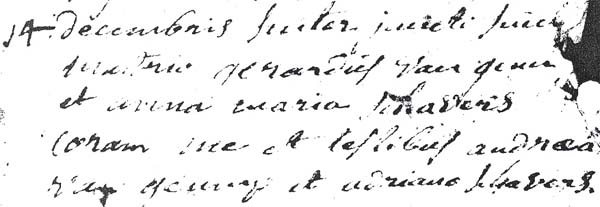 14 decembris inter juncti sunt
matrio gerardus van genu
et anna maria schavers
Coram me et testibus andrea
van genup et adriano schavers.